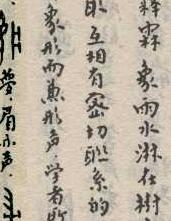 霖 象雨水淋在樹
互相有密切联系的
象形而兼形声.学者
夢.眉亦声.